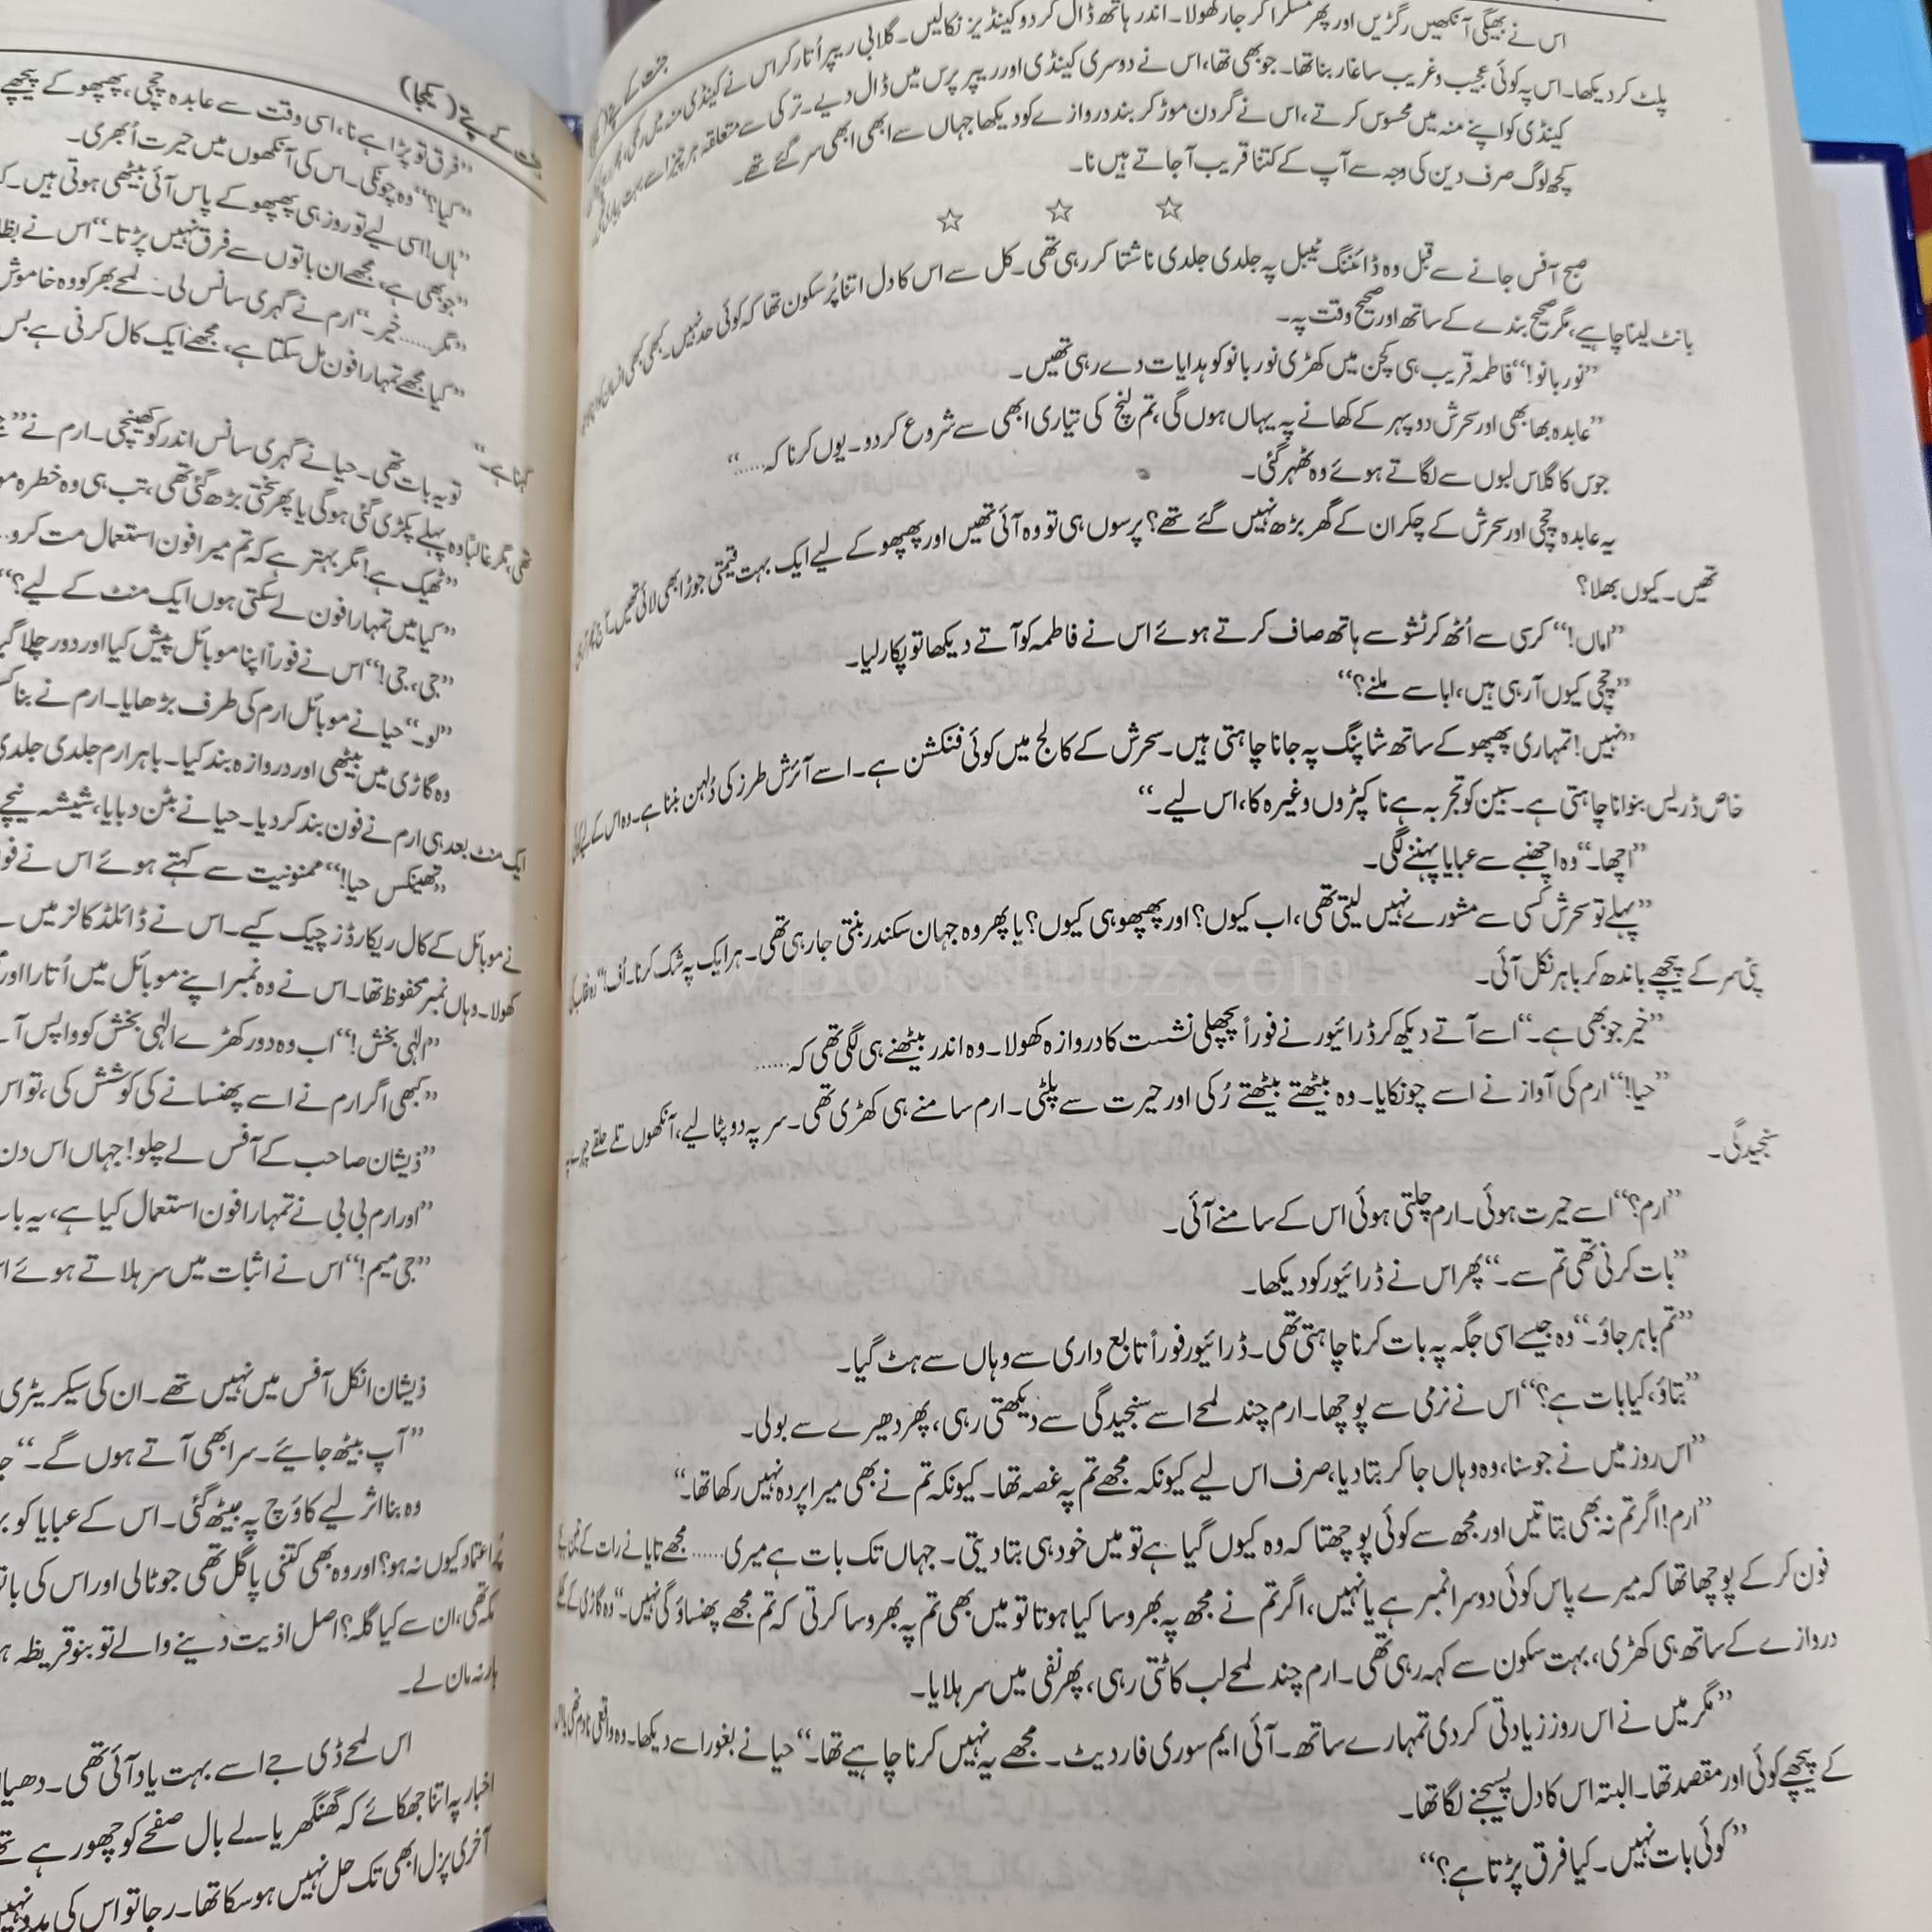 جنت کے پتے
اس نے بھیگی آنکھیں رگڑیں اور پھر مسکرا کر جار کھولا۔ اندر ہاتھ ڈال کر دو کینڈیز نکالیں۔ گلابی ریپر اُتار کر اس نے کینڈی منہ میں رکھی،
پلٹ کر دیکھا۔ اس پہ کوئی عجیب و غریب سا غار بنا تھا۔ جو بھی تھا، اس نے دوسری کینڈی اور ریپر پرس میں ڈال دیے۔ ترکی سے متعلقہ ہر چیز اسے بہت پیاری تھی۔
کینڈی کو اپنے منہ میں محسوس کرتے، اس نے گردن موڑ کر بند دروازے کو دیکھا جہاں سے ابھی ابھی سر گئے تھے۔
کچھ لوگ صرف دین کی وجہ سے آپ کے کتنا قریب آ جاتے ہیں نا۔
☆ ☆ ☆
صبح آفس جانے سے قبل وہ ڈائننگ ٹیبل پہ جلدی جلدی ناشتا کر رہی تھی۔ کل سے اس کا دل اتنا پُر سکون تھا کہ کوئی حد نہیں۔ کبھی کبھی
بانٹ لینا چاہیے، مگر صحیح بندے کے ساتھ اور صحیح وقت پہ۔
”نور بانو!“ فاطمہ قریب ہی کچن میں کھڑی نور بانو کو ہدایات دے رہی تھیں۔
”عابدہ بھابھی اور سحرش دوپہر کے کھانے پہ یہاں ہوں گی، تم لنچ کی تیاری ابھی سے شروع کر دو۔ یوں کرنا کہ......“
جوس کا گلاس لبوں سے لگاتے ہوئے وہ ٹھہر گئی۔
یہ عابدہ چچی اور سحرش کے چکر ان کے گھر بڑھ نہیں گئے تھے؟ پرسوں ہی تو وہ آئی تھیں اور پھپھو کے لیے ایک بہت قیمتی جوڑا بھی لائی تھیں۔
تھیں۔ کیوں بھلا؟
”اماں!“ کرسی سے اُٹھ کر ٹشو سے ہاتھ صاف کرتے ہوئے اس نے فاطمہ کو آتے دیکھا تو پکار لیا۔
”چچی کیوں آ رہی ہیں، ابا سے ملنے؟“
”نہیں! تمہاری پھپھو کے ساتھ شاپنگ پہ جانا چاہتی ہیں۔ سحرش کے کالج میں کوئی فنکشن ہے۔ اسے آئرش طرز کی دُلہن بننا ہے۔ وہ اس کے لیے
خاص ڈریس بنوانا چاہتی ہے۔ سبین کو تجربہ ہے نا کپڑوں وغیرہ کا، اس لیے۔“
”اچھا۔“ وہ اچنبھے سے عبایا پہننے لگی۔
”پہلے تو سحرش کسی سے مشورے نہیں لیتی تھی، اب کیوں؟ اور پھپھو ہی کیوں؟ یا پھر وہ جہان سکندر بنتی جا رہی تھی۔ ہر ایک پہ شک کرنا۔ اُف!“
پٹی سر کے پیچھے باندھ کر باہر نکل آئی۔
”خیر جو بھی ہے۔“ اسے آتے دیکھ کر ڈرائیور نے فوراً پچھلی نشست کا دروازہ کھولا۔ وہ اندر بیٹھنے ہی لگی تھی کہ......
”حیا!“ ارم کی آواز نے اسے چونکایا۔ وہ بیٹھتے بیٹھتے رُکی اور حیرت سے پلٹی۔ ارم سامنے ہی کھڑی تھی۔ سر پہ دوپٹا لیے، آنکھوں تلے حلقے
سنجیدگی۔
”ارم؟“ اسے حیرت ہوئی۔ ارم چلتی ہوئی اس کے سامنے آئی۔
”بات کرنی تھی تم سے۔“ پھر اس نے ڈرائیور کو دیکھا۔
”تم باہر جاؤ۔“ وہ جیسے اسی جگہ پہ بات کرنا چاہتی تھی۔ ڈرائیور فوراً تابع داری سے وہاں سے ہٹ گیا۔
”بتاؤ، کیا بات ہے؟“ اس نے نرمی سے پوچھا۔ ارم چند لمحے اسے سنجیدگی سے دیکھتی رہی، پھر دھیرے سے بولی۔
”اس روز میں نے جو سنا، وہ وہاں جا کر بتا دیا، صرف اس لیے کیونکہ مجھے تم پہ غصہ تھا۔ کیونکہ تم نے بھی میرا پردہ نہیں رکھا تھا۔“
”ارم! اگر تم نہ بھی بتاتیں اور مجھ سے کوئی پوچھتا کہ وہ کیوں گیا ہے تو میں خود ہی بتا دیتی۔ جہاں تک بات ہے میری...... مجھے تایا نے رات کے
فون کر کے پوچھا تھا کہ میرے پاس کوئی دوسرا نمبر ہے یا نہیں، اگر تم نے مجھ پہ بھروسا کیا ہوتا تو میں بھی تم پہ بھروسا کرتی کہ تم مجھے پھنساؤ گی نہیں۔“ وہ گاڑی کے
دروازے کے ساتھ ہی کھڑی، بہت سکون سے کہہ رہی تھی۔ ارم چند لمحے لب کاٹتی رہی، پھر نفی میں سر ہلایا۔
”مگر میں نے اس روز زیادتی کر دی تمہارے ساتھ۔ آئی ایم سوری فار دیٹ۔ مجھے یہ نہیں کرنا چاہیے تھا۔“ حیا نے بغور اسے دیکھا۔ وہ واقعی نادم تھی یا اس
کے پیچھے کوئی اور مقصد تھا۔ البتہ اس کا دل پسیجنے لگا تھا۔
”کوئی بات نہیں۔ کیا فرق پڑتا ہے؟“
جنت کے پتے (یکجا)
”فرق تو پڑا ہے نا، اسی وقت سے عابدہ چچی، پھپھو کے پیچھے
”کیا؟“ وہ چونکی۔ اس کی آنکھوں میں حیرت اُبھری۔
”ہاں! اسی لیے تو روز ہی پھپھو کے پاس آئی بیٹھی ہوتی ہیں۔
”جو بھی ہے، مجھے ان باتوں سے فرق نہیں پڑتا۔“ اس نے
”مگر...... خیر۔“ ارم نے گہری سانس لی۔ لمحے بھر کو وہ خاموش
”کیا مجھے تمہارا فون مل سکتا ہے، مجھے ایک کال کرنی ہے بس
کہنا ہے۔“
تو یہ بات تھی۔ حیا نے گہری سانس اندر کو کھینچی۔ ارم نے
تھی، مگر غالباً وہ پہلے پکڑی گئی ہوگی یا پھر سختی بڑھ گئی تھی، تب ہی وہ خطرہ
”ٹھیک ہے! مگر بہتر ہے کہ تم میرا فون استعمال مت کرو۔
”کیا میں تمہارا فون لے سکتی ہوں ایک منٹ کے لیے؟“
”جی، جی!“ اس نے فوراً اپنا موبائل پیش کیا اور دور چلا گیا
”لو۔“ حیا نے موبائل ارم کی طرف بڑھایا۔ ارم نے بنا
وہ گاڑی میں بیٹھی اور دروازہ بند کیا۔ باہر ارم جلدی جلدی
ایک منٹ بعد ہی ارم نے فون بند کر دیا۔ حیا نے بٹن دبایا، شیشہ نیچے
”تھینکس حیا!“ ممنونیت سے کہتے ہوئے اس نے
نے موبائل کے کال ریکارڈز چیک کیے۔ اس نے ڈائلڈ کالز میں
کھولا۔ وہاں نمبر محفوظ تھا۔ اس نے وہ نمبر اپنے موبائل میں اُتارا اور
”الٰہی بخش!“ اب وہ دور کھڑے الٰہی بخش کو واپس
”کبھی اگر ارم نے اسے پھنسانے کی کوشش کی، تو اس
”ذیشان صاحب کے آفس لے چلو! جہاں اس دن
”اور ارم بی بی نے تمہارا فون استعمال کیا ہے، یہ بات
”جی میم!“ اس نے اثبات میں سر ہلاتے ہوئے
ذیشان انکل آفس میں نہیں تھے۔ ان کی سیکریٹری
”آپ بیٹھ جائیے۔ سر ابھی آتے ہوں گے۔“
وہ بنا اثر لیے کاؤچ پہ بیٹھ گئی۔ اس کے عبایا کو
پُر اعتماد کیوں نہ ہو؟ اور وہ بھی کتنی پاگل تھی جو ٹالی اور اس کی
مکہ تھی، ان سے کیا گلہ؟ اصل اذیت دینے والے تو بنو قریظہ
ہار نہ مان لے۔
اس لمحے ڈی جے اسے بہت یاد آئی تھی۔
اخبار پہ اتنا جھکائے کہ گھنگھریالے بال صفحے کو چھو رہے
آخری پزل ابھی تک حل نہیں ہو سکا تھا۔ رجا تو اس کی مدد نہیں